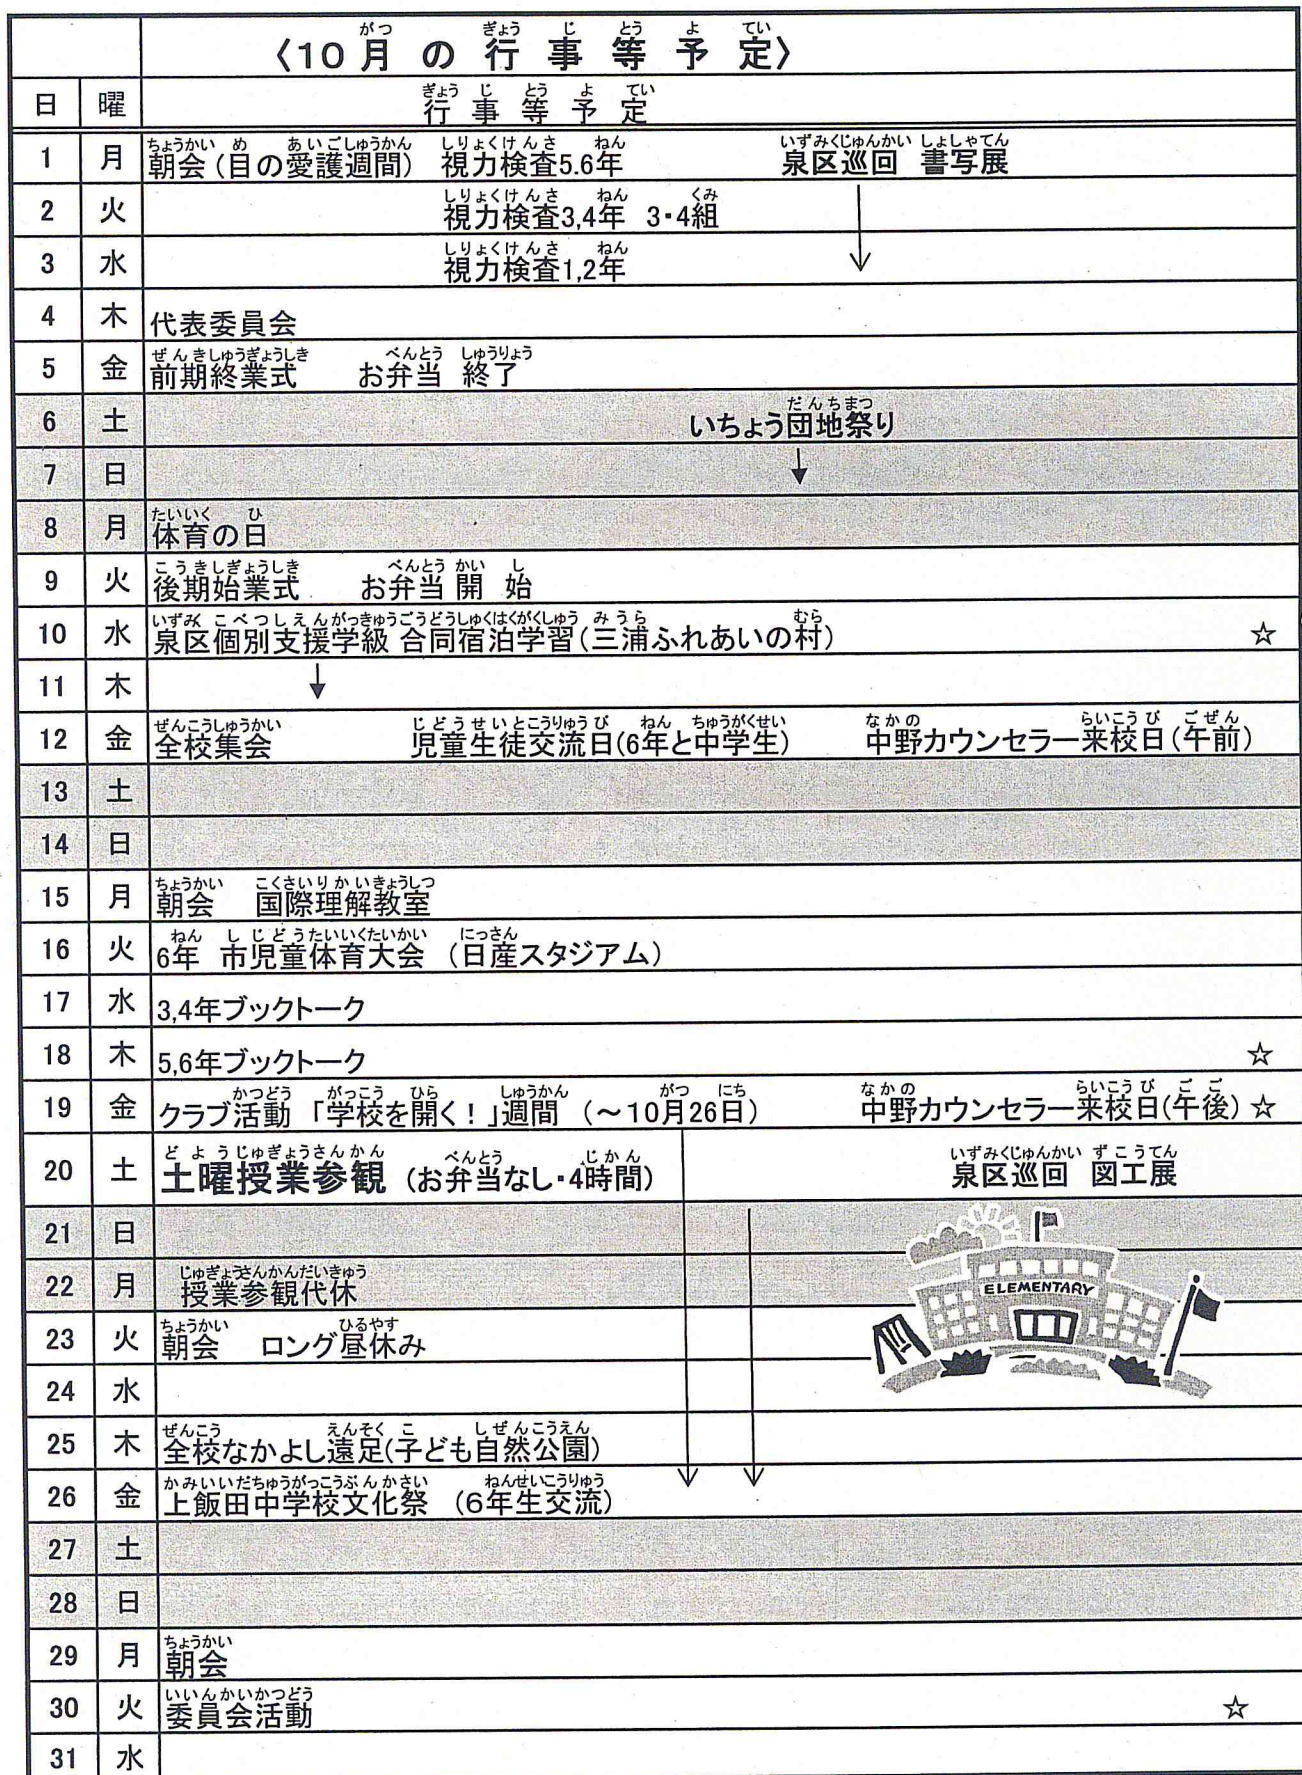 〈10月の行事等予定〉
日 曜 行事等予定
1 月 朝会(目の愛護週間) 視力検査5.6年 泉区巡回 書写展
2 火 視力検査3,4年 3・4組
3 水 視力検査1,2年
4 木 代表委員会
5 金 前期終業式 お弁当 終了
6 土 いちょう団地祭り
7 日
8 月 体育の日
9 火 後期始業式 お弁当 開 始
10 水 泉区個別支援学級 合同宿泊学習(三浦ふれあいの村) ☆
11 木
12 金 全校集会 児童生徒交流日(6年と中学生) 中野カウンセラー来校日(午前)
13 土
14 日
15 月 朝会 国際理解教室
16 火 6年 市児童体育大会 (日産スタジアム)
17 水 3,4年ブックトーク
18 木 5,6年ブックトーク ☆
19 金 クラブ活動 「学校を開く!」週間 (~10月26日) 中野カウンセラー来校日(午後) ☆
20 土 土曜授業参観 (お弁当なし・4時間) 泉区巡回 図工展
21 日
22 月 授業参観代休
ELEMENTARY
23 火 朝会 ロング昼休み
24 水
25 木 全校なかよし遠足(子ども自然公園)
26 金 上飯田中学校文化祭 (6年生交流)
27 土
28 日
29 月 朝会
30 火 委員会活動 ☆
31 水